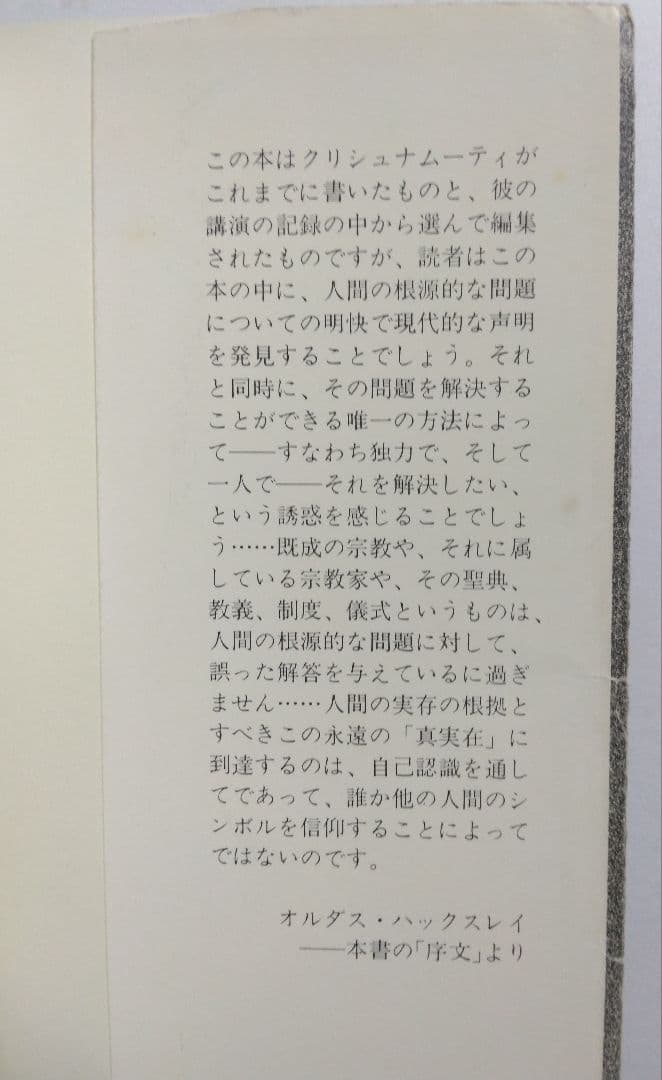 この本はクリシュナムーティが
これまでに書いたものと、彼の
講演の記録の中から選んで編集
されたものですが、読者はこの
本の中に、人間の根源的な問題
についての明快で現代的な声明
を発見することでしょう。それ
と同時に、その問題を解決する
ことができる唯一の方法によっ
て――すなわち独力で、そして
一人で――それを解決したい、
という誘惑を感じることでしょ
う……既成の宗教や、それに属
している宗教家や、その聖典、
教義、制度、儀式というものは、
人間の根源的な問題に対して、
誤った解答を与えているに過ぎ
ません……人間の実存の根拠と
すべきこの永遠の「真実在」に
到達するのは、自己認識を通し
てであって、誰か他の人間のシ
ンボルを信仰することによって
ではないのです。
オルダス・ハックスレイ
――本書の「序文」より